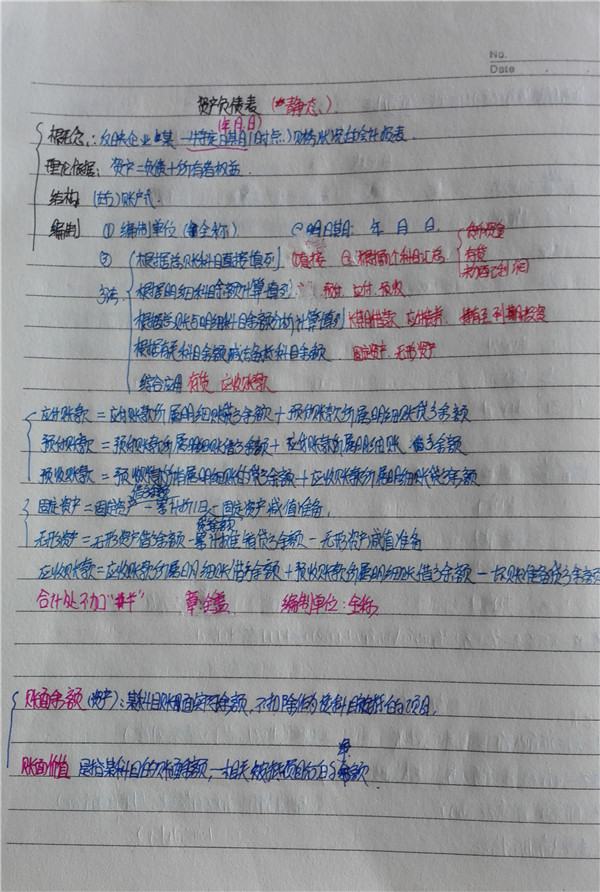 No.
Date
资产负债表 (静态)
(年月日)
概念:反映企业某一特定日期(时点)财务状况的会计报表
理论依据:资产=负债+所有者权益
结构 (左右)账户式
编制 ①编制单位(全称) ②日期: 年 月 日
货币资金
③ 根据总账科目直接填列 直接 根据几个科目汇总 存货
未分配利润
方法 根据明细科目余额计算填列 预付、应付、预收
根据总账与明细科目余额分析计算填列 长期借款 应付债券、持有至到期投资
根据有关科目余额减去备抵科目余额 固定资产、无形资产
综合应用 存货 应收账款
应付账款=应付账款所属明细账贷方余额+预付账款所属明细账贷方余额
预付账款=预付账款所属明细账借方余额+应付账款所属明细账 借方余额
预收账款=预收账款所属明细账的贷方余额+应收账款所属明细账贷方余额
固定资产=固定资产-累计折旧-固定资产减值准备
无形资产=无形资产借方余额-累计摊销贷方余额-无形资产减值准备
应收账款=应收账款所属明细账借方余额+预收账款所属明细账借方余额-坏账准备贷方余额
合计处不加“#” 章:全盖 编制单位:全称
账面余额(资产):某科目账面实际余额,不扣除作为该科目备抵的项目。
账面价值 是指某科目的账面余额-相关备抵项目后的净额